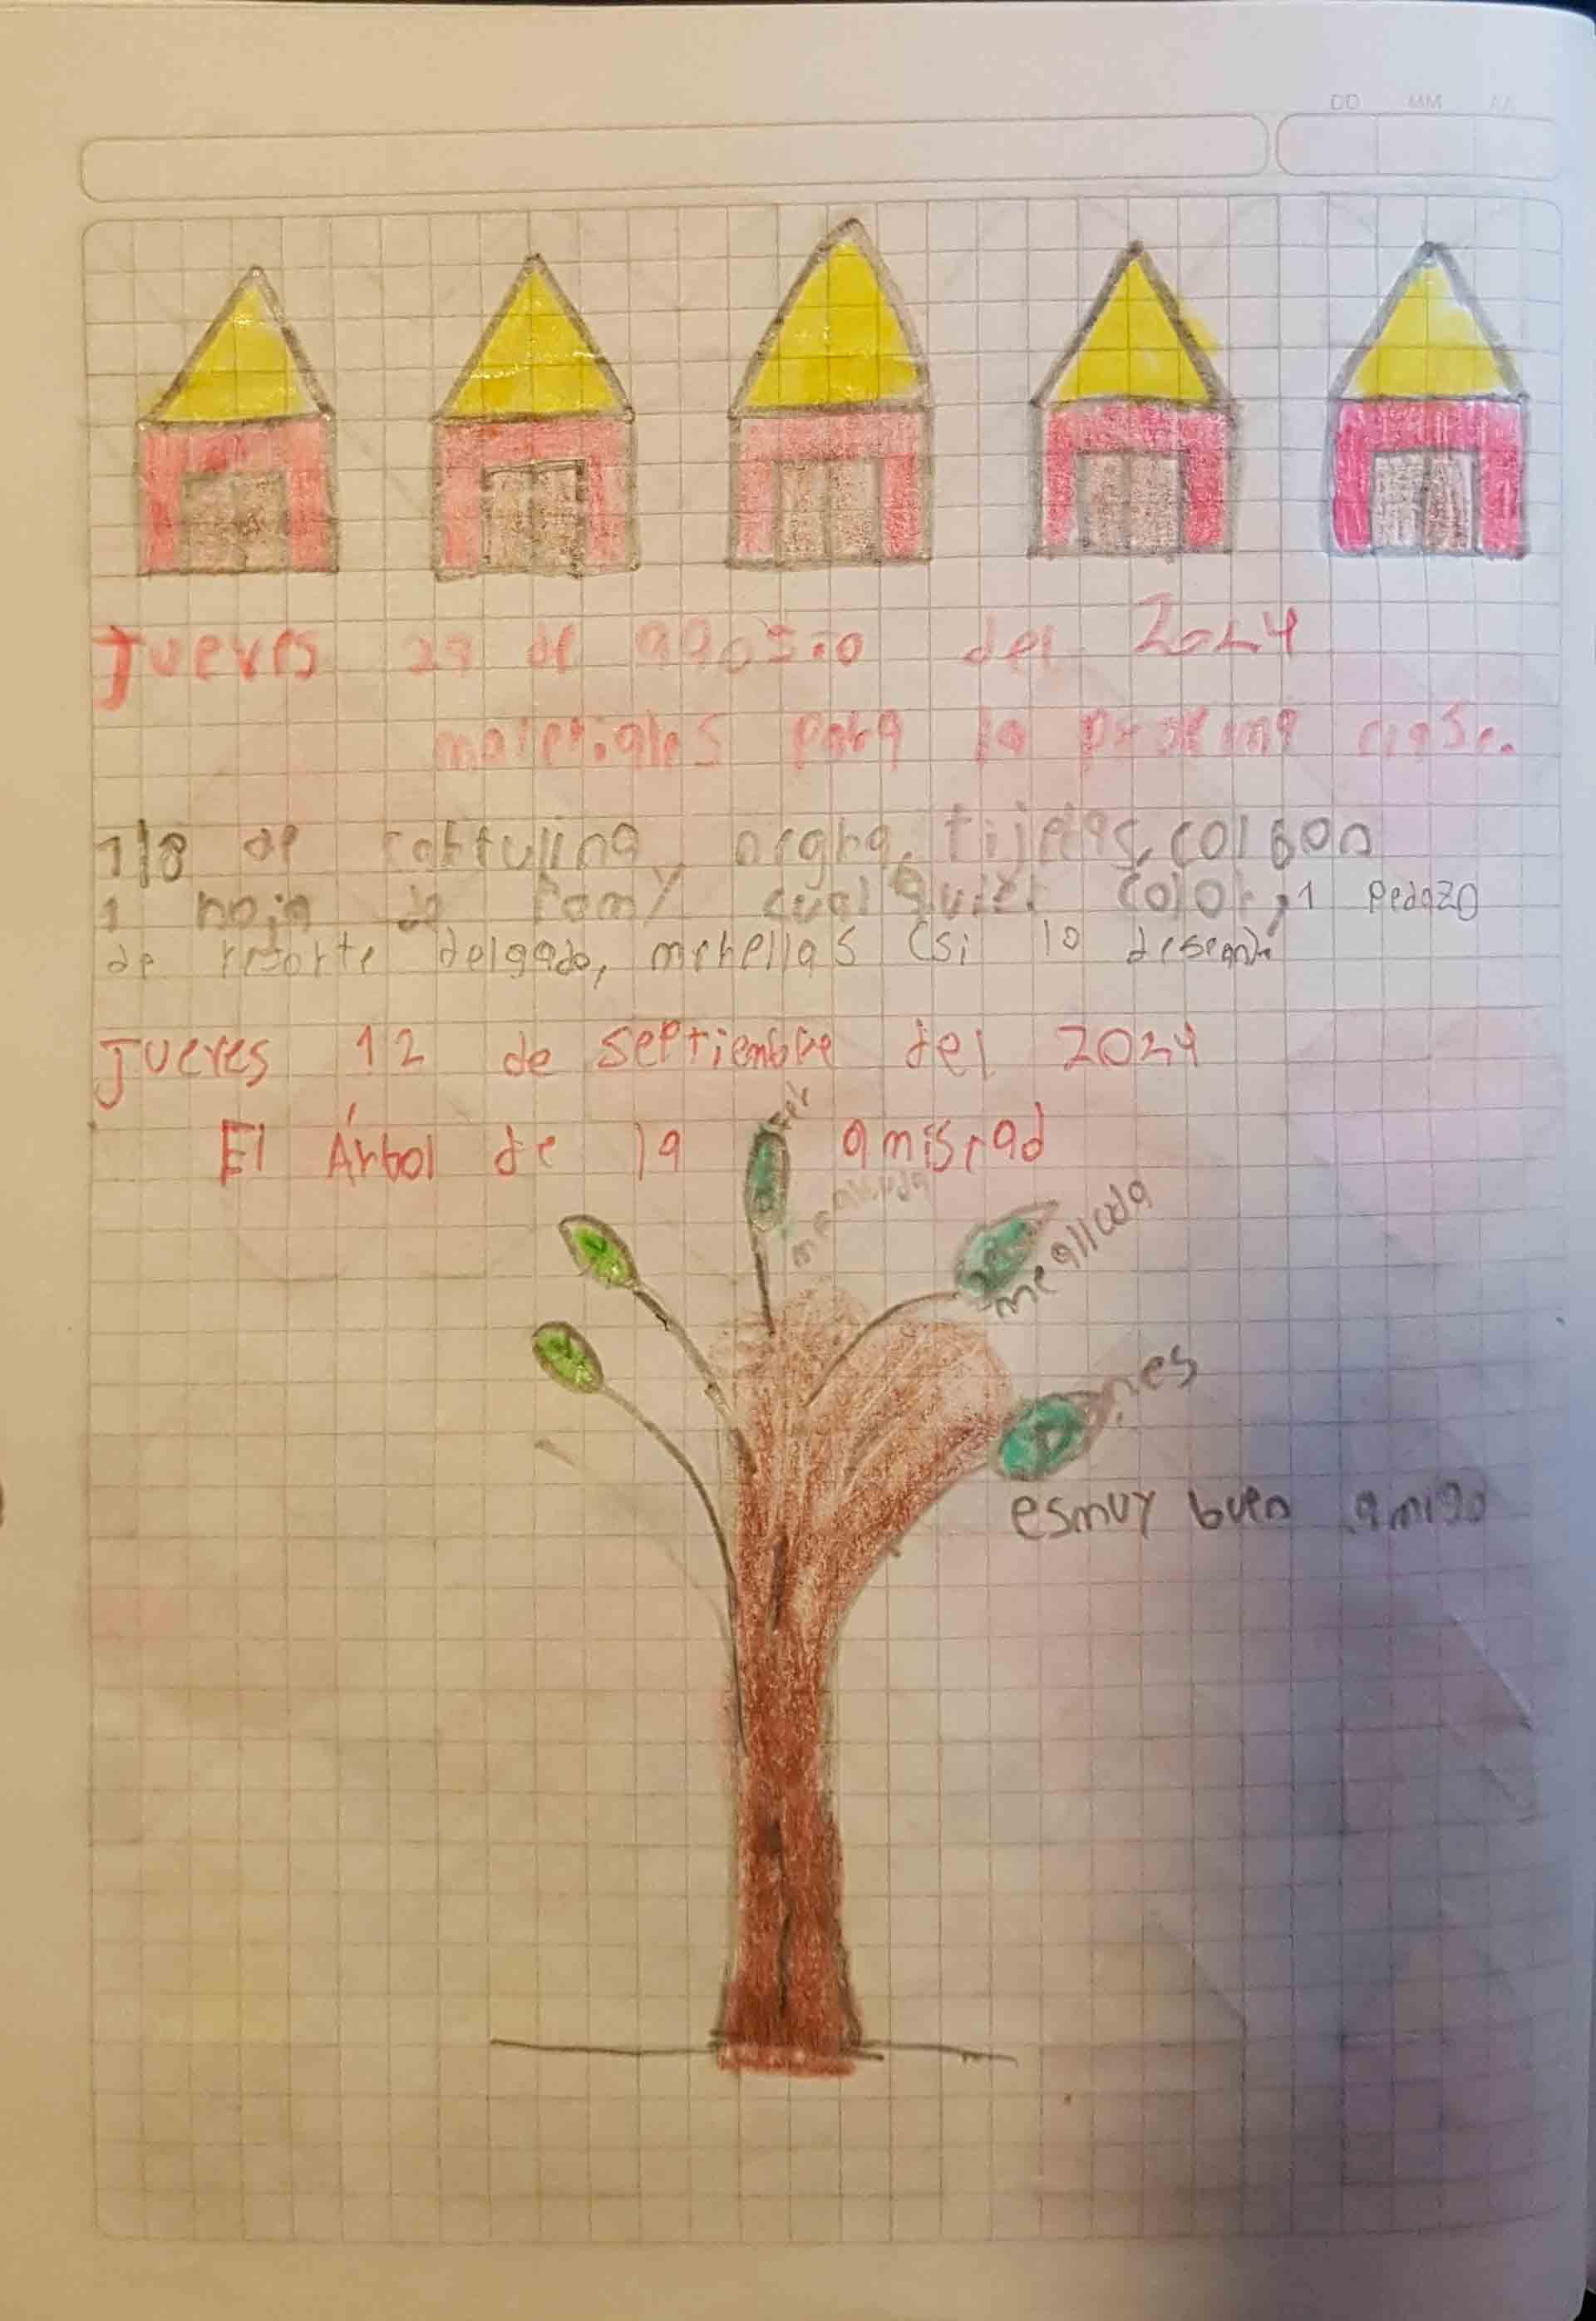 DD MM AA
Jueves 29 de agosto del 2024
materiales para la proxima clase.
1/8 de cartulina negra, tijeras, colbon
1 hoja de fomy cualquier color, 1 pedazo
de resorte delgado, mirellas (si lo desean)
Jueves 12 de septiembre del 2024
El Árbol de la amistad
me alluda
me alluda
es muy buen amigo